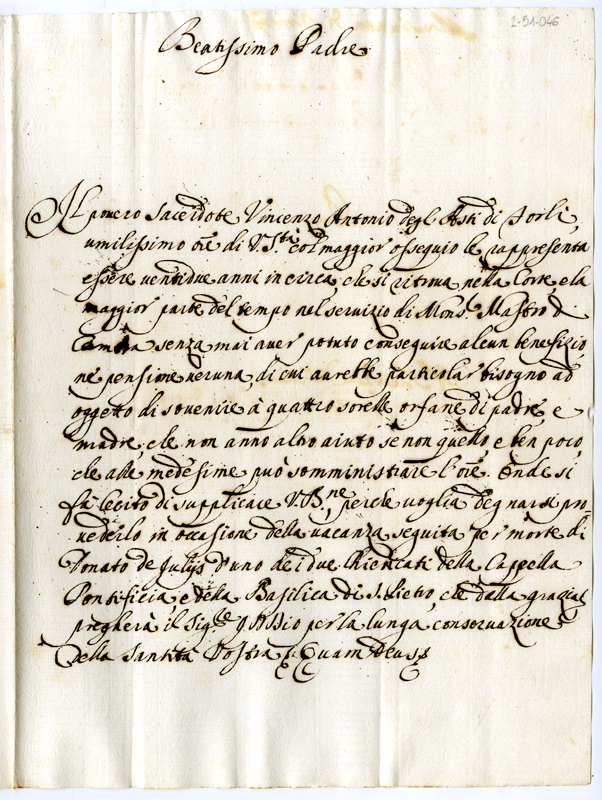 2-51-046
Beatissimo Padre
Il povero Sacerdote Vincenzo Antonio degl'Asti di Forlì,
umilissimo ore di V. Stà col maggior ossequio le rappresenta
essere ventidue anni in circa, che si ritrova nella Corte, e la
maggior parte del tempo nel servizio di Mons.r Mastro di
Camera senza mai aver potuto conseguire alcun benefizio,
ne pensione veruna, di cui avrebbe particolar bisogno ad
oggetto di sovenire à quattro sorelle orfane di padre, e
madre, che non anno altro aiuto se non quello, e ben poco,
che alle medesime può somministrare l'ore. Onde si
fà lecito di supplicare V. Bne, perche voglia degnarsi pro-
vederlo in occasione della vacanza seguita per morte di
Donato de Julijs d'uno dei due Chiericati della Cappella
Pontificia, e della Basilica di S. Pietro, che della grazia
pregherà il Sig.re per la lunga conservazione
della Santità Vostra. Quam Deus